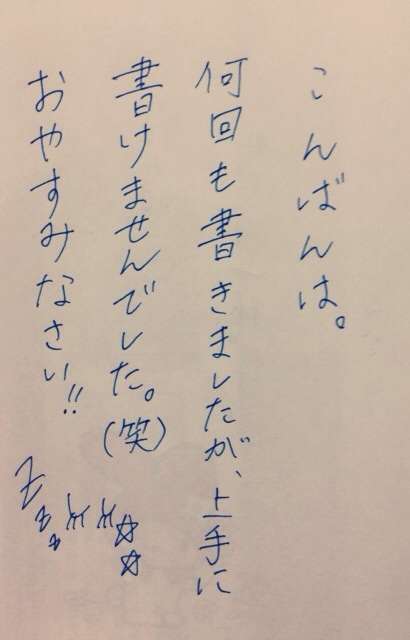 こんばんは。
何回も書きましたが、上手に
書けませんでした。(笑)
おやすみなさい!!